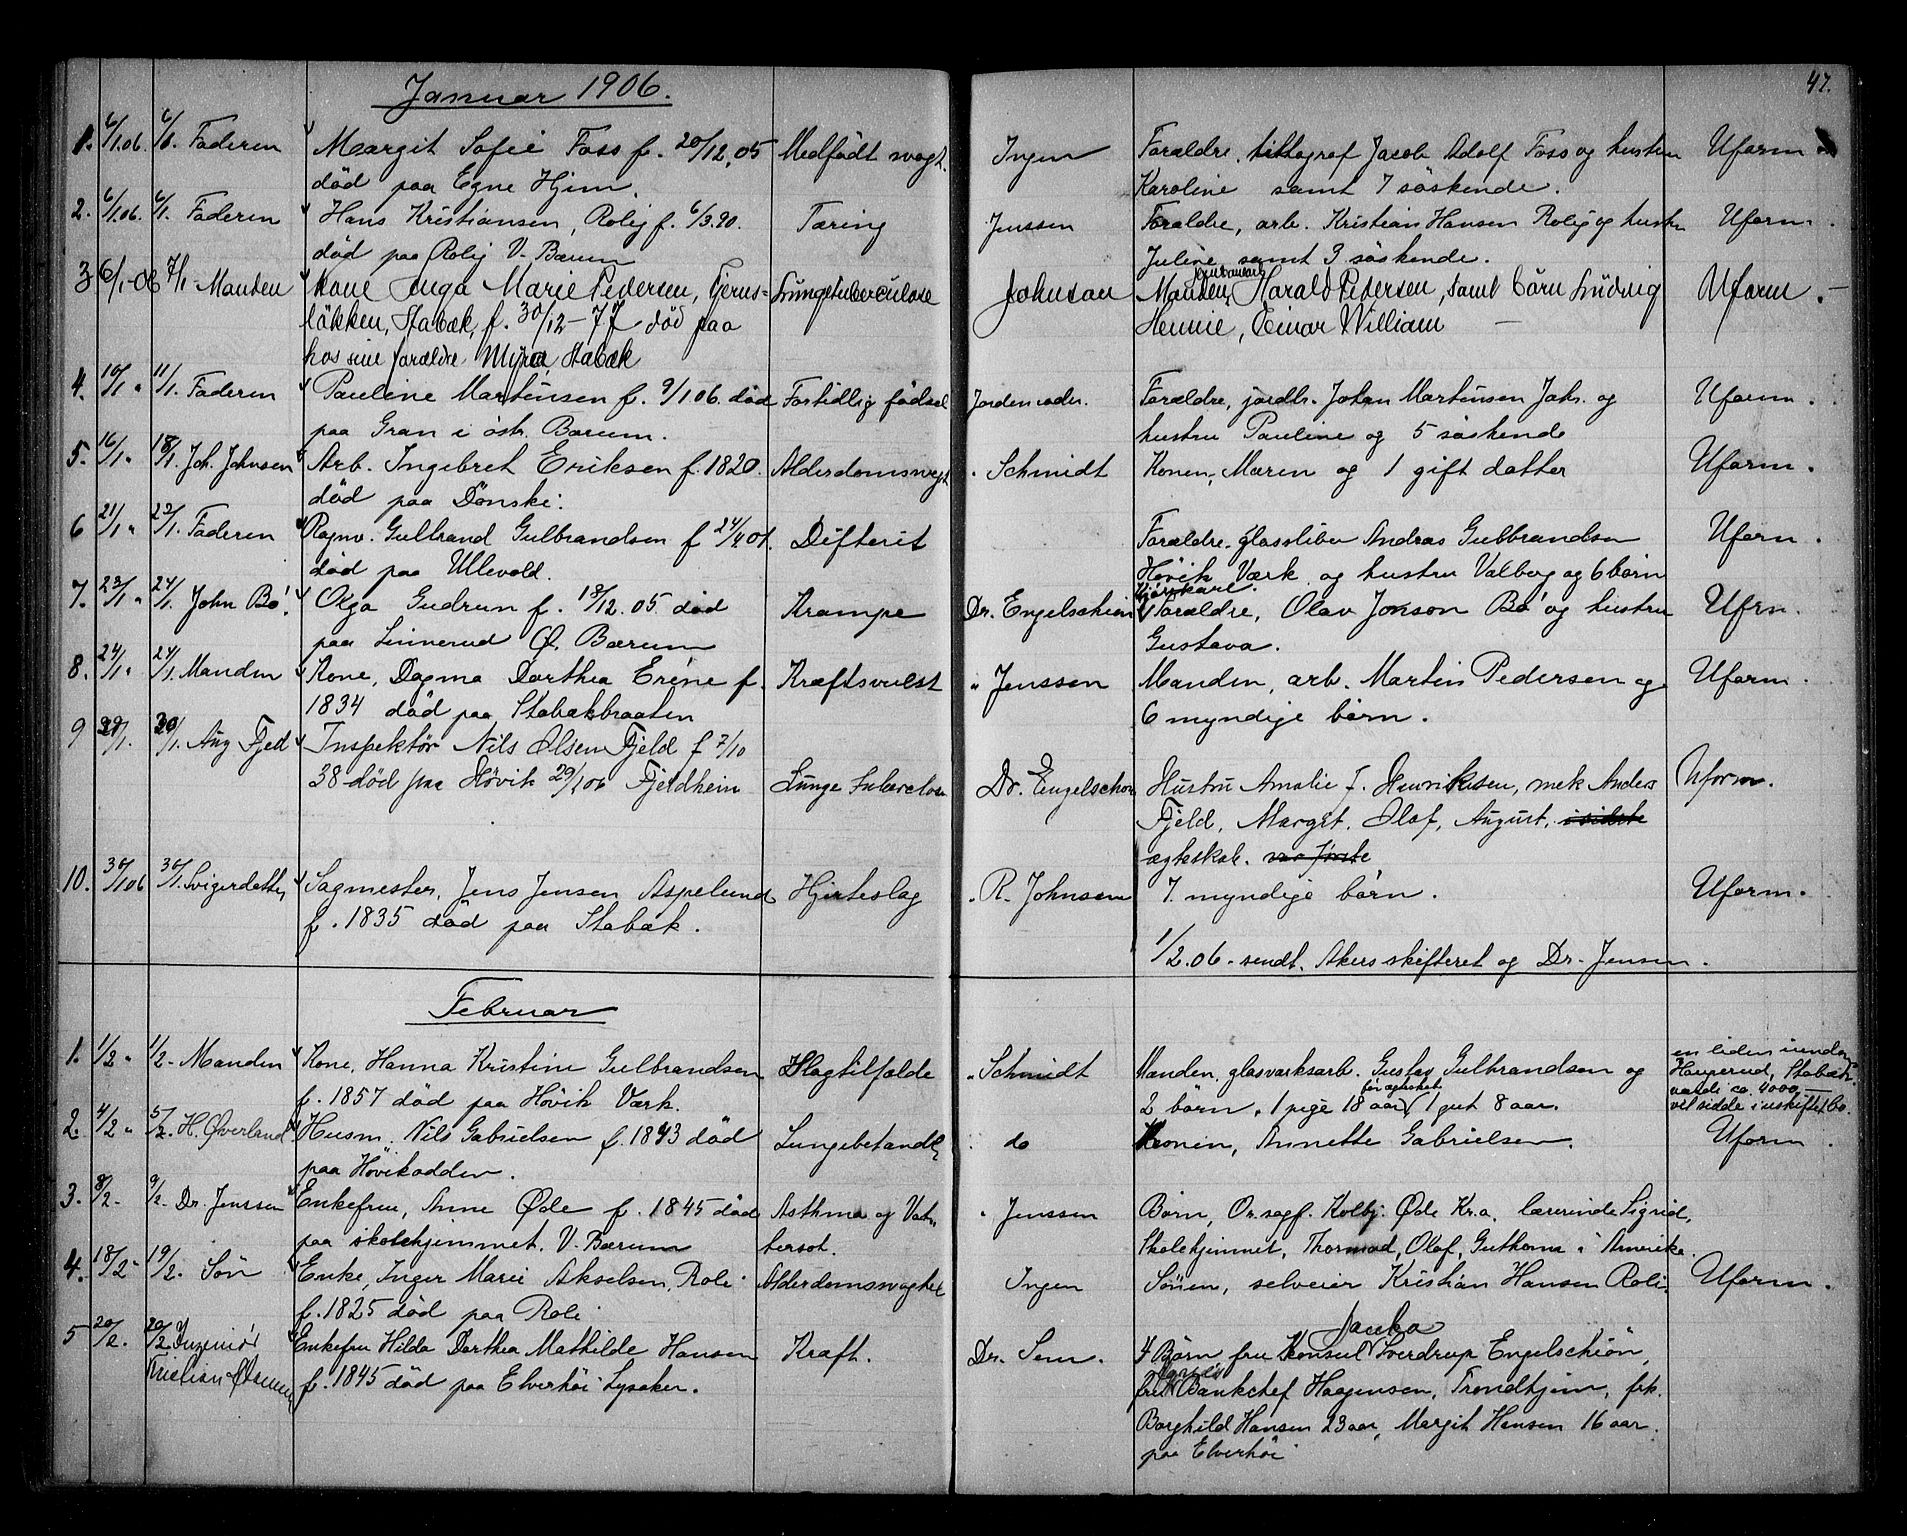 47.
Januar 1906.
1. 6/1.06. 6/1. Faderen Margit Sofie Foss f. 20/12.05 Medfødt svagt. Ingen Forældre, Jacob Adolf Foss og hustru Uform
død paa Egne Hjem. Karoline samt 7 søskende.
2. 6/1.06. 6/1. Faderen Hans Kristiansen, Rolig f. 6/3.90. Tæring Jenssen Forældre, arb. Kristian Hansen Rolig og hustru Uform.
død paa Rolig V. Bærum Juline samt 3 søskende.
3 6/1-06 7/1 Manden Kone Inga Marie Pedersen, Tjerns- Lungetuberculose Johnson Manden, Harald Pedersen, samt börn Ludvig Uform.-
løkken, Stabæk, f. 30/12-77 død paa Hennie, Einar William -
hos sine forældre Myra Stabæk
4. 10/1 " 11/1. Faderen Pauline Martinsen f. 9/1 06. død Fortidlig fødsel Jordemoder. Forældre, jordbr. Johan Martinsen Jahr. og Uform.
paa Gran i östr. Bærum. hustru Pauline og 5 søskende
5. 16/1 " 18/1. Joh. Johnsen Arb. Ingebret Eriksen f. 1820. Alderdomssvagt " Schmidt Konen, Maren og 1 gift datter Uform.
død paa Dønski.
6 21/1 " 23/1. Faderen Ragnv. Gulbrand Gulbrandsen f 24/4.01. Difterit Forældre, glassliber Andras Gulbrandsen Uform.
død paa Ullevold. Høvik Værk og hustru Valborg og 6 börn
7. 23/1 " 24/1. John Bö. Olga Gudrun f. 18/12.05. død Krampe Dr. Engelschiøn Forældre, Olav Jonson Bö og hustru Ufrm.
paa Linnerud Ø. Bærum Gustava.
8. 24/1 " 24/1. Manden Kone, Dagma Dorthea Eréne f. Kræftsvulst " Jenssen Manden, arb. Martin Pedersen og Uform.
1834 død paa Stabækbraaten 6 myndige börn.
9 29/1. 30/1. Aug Fjeld Inspektör Nils Olsen Fjeld f 7/10
38 død paa Høvik 29/1 06 Fjeldheim Lunge Tuberculose Dr. Engelschøn Hustru Amalie f. Henriksen, mek Anders Uform.
Fjeld, Margit, Olaf, August, i sidste
ægteskab. var første
10. 30/1 06 30/1. Svigerdatter Sagmester, Jens Jensen Aspelund Hjerteslag " R. Johnsen 7. myndige börn. Uform.
f. 1835 död paa Stabæk.
1/2.06. sendt. Akers skifteret og Dr. Jensen.
Februar
1. 1/2 " 1/2 - Manden Kone, Hanna Kristine Gulbrandsen Slagtilfælde " Schmidt Manden, glasværksarb. Gustav Gulbrandsen og en liden iendom
f. 1857 död paa Høvik Værk. 2 börn, 1 pige 18 aar før ægteskab 1 gut 8 aar. Haugerud, Stabæk værdi ca. 4000 vil sidde i uskiftet bo.
2. 4/2 " 5/2. H. Øverland Husm. Nils Gabrielsen f. 1843 död Lungebetændl. do Konen, Annette Gabrielsen. Uform.
paa Høvikodden.
3. 8/2 - 9/2 - Dr. Jenssen Enkefru, Anne Øde f. 1845 död Asthma og Vat- " Jenssen Børn, Or.sagf. Kolbj. Øde Kr.a. lærerinde Sigrid,
paa skolehjemmet. V. Bærum tersot. Skolehjemmet, Thormod, Olaf, Guthorm i Amerika.
4. 18/2 - 19/2. Sön Enke, Inger Marie Akselsen, Roli Alderdomssvaghet Ingen Sönen, selveier Kristian Hansen Roli. Uform.
f. 1825 död paa Roli
5 20/2. 20/2 Ingeniör Enkefru Hilda Dorthea Mathilde Hansen Kræft. Dr. Sem. 4 Børn fru Konsul Sverdrup Engelschiøn,
Kristian f. 1845 död paa Elverhöi Lysaker. fru Bankchef Haagensen, Trondhjem, frk.
Borghild Hansen 23 aar, Margit Hansen 16 aar.
paa Elverhöi